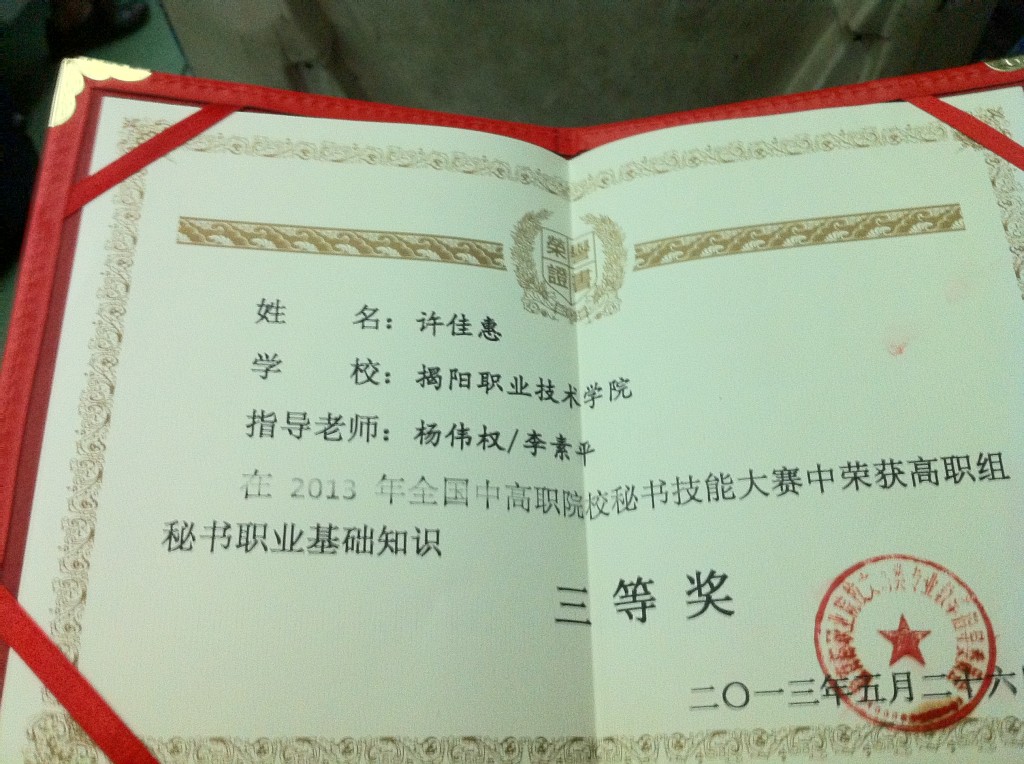 榮譽
證書
姓 名：许佳惠
学 校：揭阳职业技术学院
指导老师：杨伟权/李素平
在 2013 年全国中高职院校秘书技能大赛中荣获高职组
秘书职业基础知识
三等奖
二〇一三年五月二十六